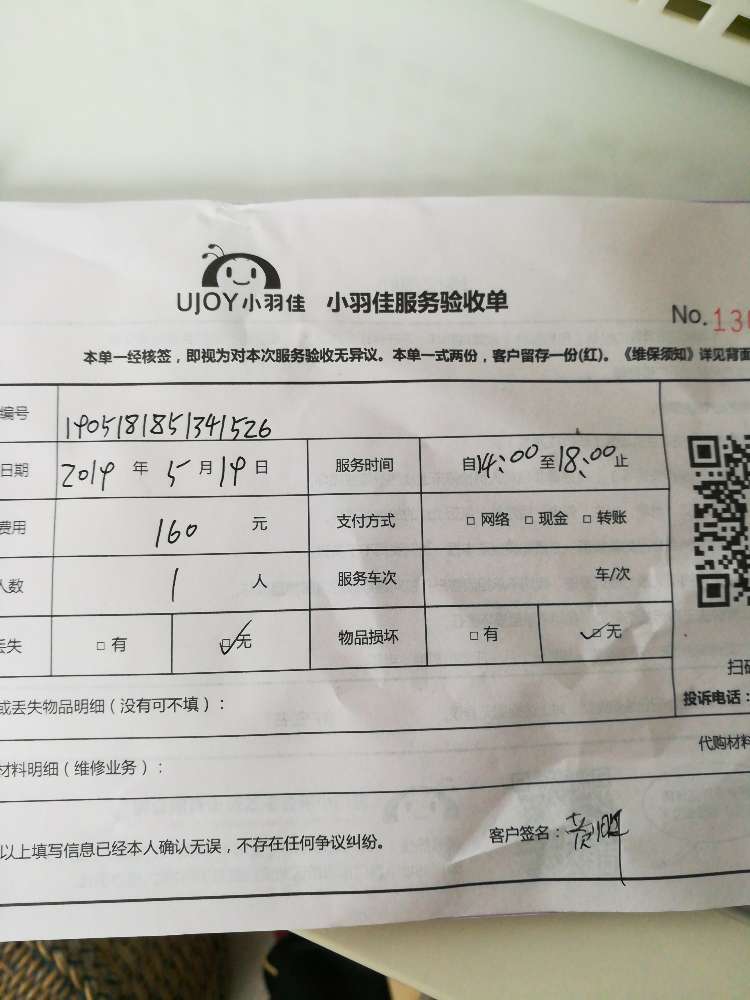 UJOY小羽佳 小羽佳服务验收单
No.13
本单一经核签，即视为对本次服务验收无异议。本单一式两份，客户留存一份(红)。《维保须知》详见背面
编号 1905181851341526
日期 2019 年 5 月 19 日 服务时间 自14:00至18:00止
费用 160 元 支付方式 □ 网络 □ 现金 □ 转账
人数 1 人 服务车次 车/次
丢失 □ 有 ☑无 物品损坏 □ 有 ☑无
扫码
或丢失物品明细（没有可不填）：
投诉电话：
材料明细（维修业务）：
代购材料
以上填写信息已经本人确认无误，不存在任何争议纠纷。
客户签名：